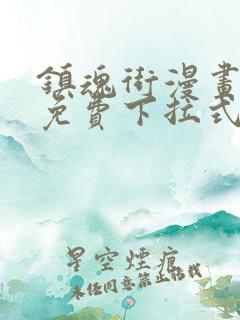 鎮魂街漫畫
免費下拉式
星空煙痕
未經同意禁止轉載